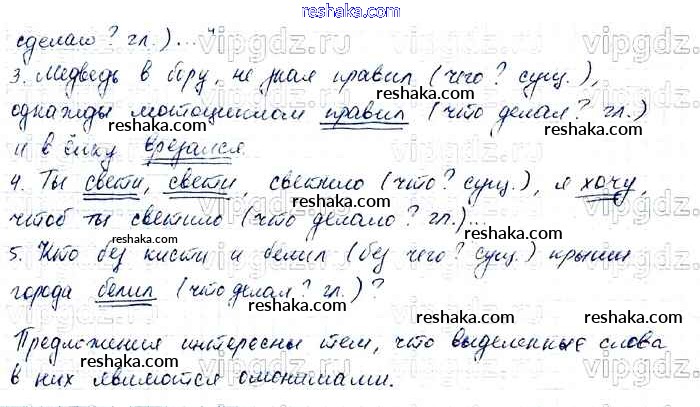 reshaka.com
сделало? гл.)..."
3. Медведь в бору, не зная правил (чего? сущ.),
однажды мотоциклом правил (что делал? гл.)
и в ёлку врезался.
4. Ты свети, свети, светило (что? сущ.), я хочу,
чтоб ты светило (что делало? гл.)...
5. Кто без кисти и белил (без чего? сущ.) крыши
города белил (что делал? гл.)?
Предложения интересны тем, что выделенные слова
в них являются омонимами.